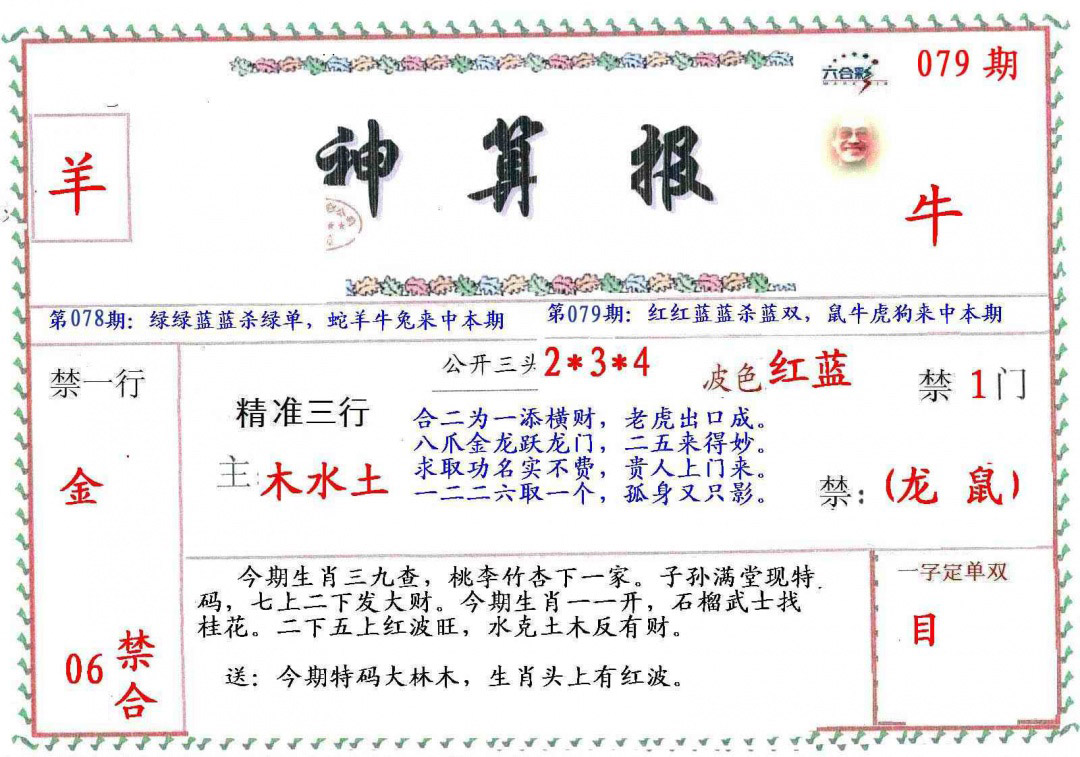 六合彩
079 期
神算报
羊
牛
第078期：绿绿蓝蓝杀绿单，蛇羊牛兔来中本期
第079期：红红蓝蓝杀蓝双，鼠牛虎狗来中本期
禁一行
金
06 禁合
精准三行
主：木水土
公开三头 2*3*4
波色 红蓝
禁 1 门
合二为一添横财，老虎出口成。
八爪金龙跃龙门，二五来得妙。
求取功名实不费，贵人上门来。
一二二六取一个，孤身又只影。
禁：(龙 鼠)
今期生肖三九查，桃李竹杏下一家。子孙满堂现特
码，七上二下发大财。今期生肖一一开，石榴武士找
桂花。二下五上红波旺，水克土木反有财。
送：今期特码大林木，生肖头上有红波。
一字定单双
目